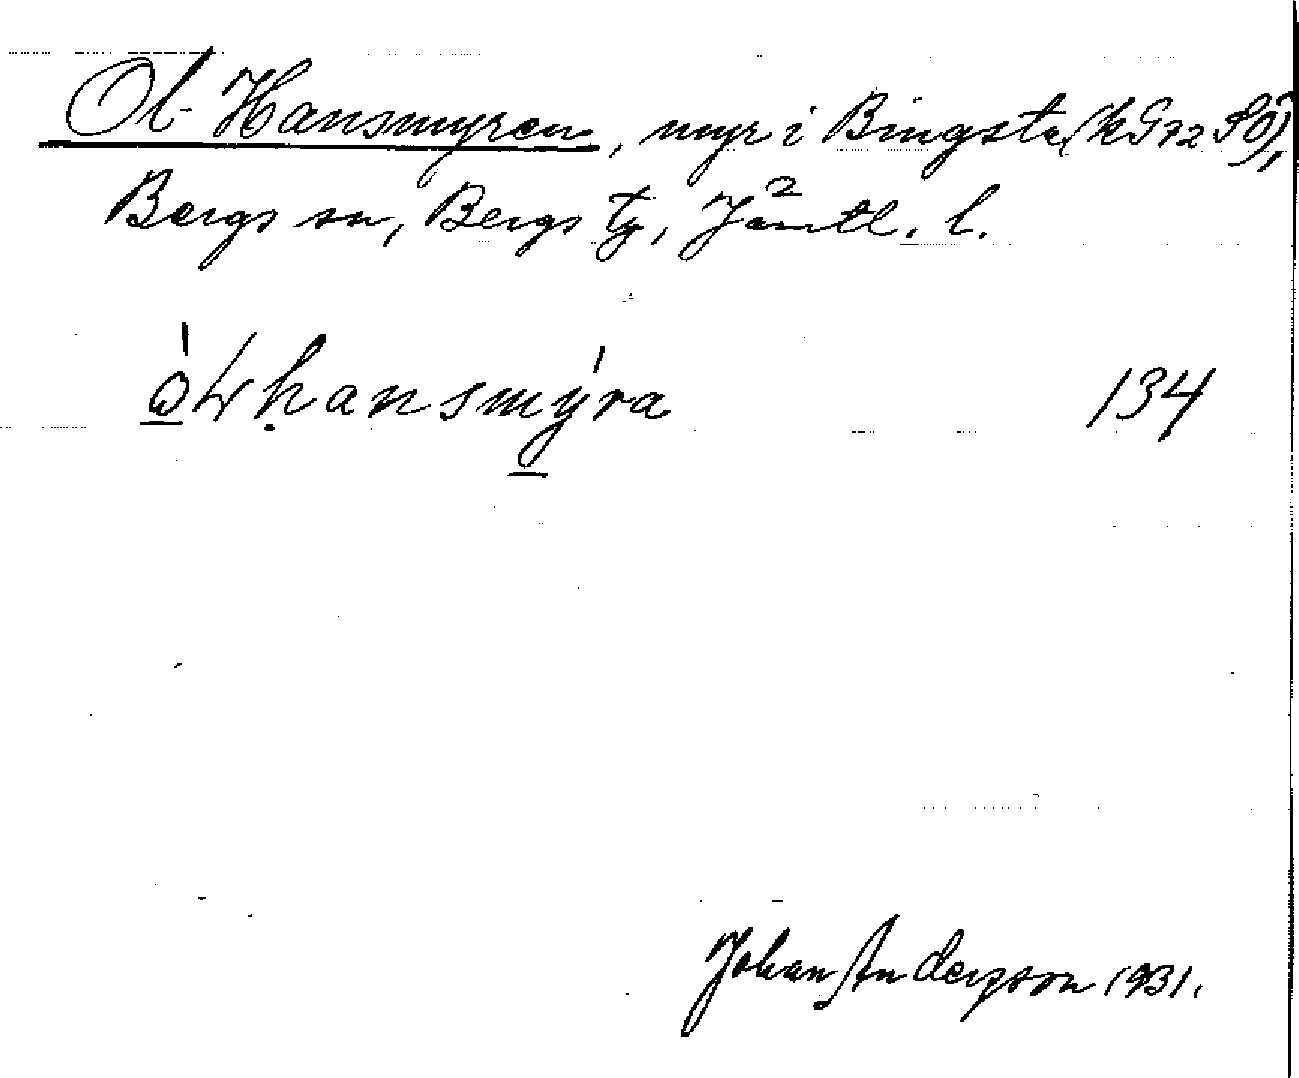 Ol-Hansmyren, myr i Bingsta (kG72 SO),
Bergs sn, Bergs tg, Jämtl. l.
134
Johan Anderson 1931.